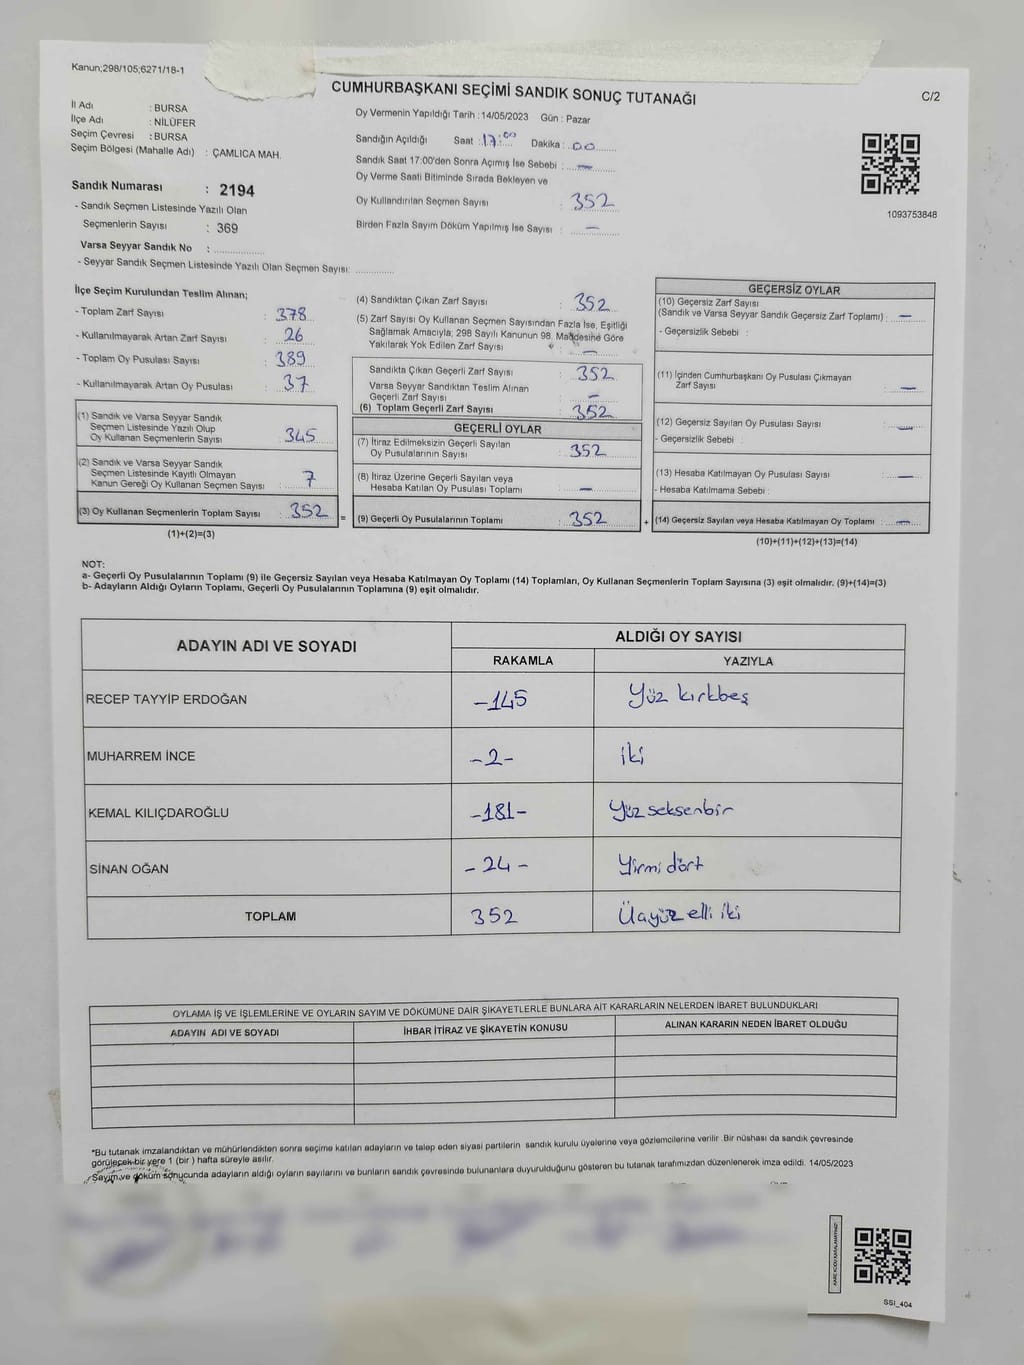 Kanun;298/105;6271/18-1
CUMHURBAŞKANI SEÇİMİ SANDIK SONUÇ TUTANAĞI
C/2
İl Adı : BURSA
İlçe Adı : NİLÜFER
Seçim Çevresi : BURSA
Seçim Bölgesi (Mahalle Adı) : ÇAMLICA MAH.
Sandık Numarası : 2194
- Sandık Seçmen Listesinde Yazılı Olan
Seçmenlerin Sayısı : 369
Varsa Seyyar Sandık No : ..............
- Seyyar Sandık Seçmen Listesinde Yazılı Olan Seçmen Sayısı: ............
Oy Vermenin Yapıldığı Tarih : 14/05/2023 Gün : Pazar
Sandığın Açıldığı Saat : 17:00 Dakika : 00
Sandık Saat 17:00'den Sonra Açılmış İse Sebebi : —
Oy Verme Saati Bitiminde Sırada Bekleyen ve
Oy Kullandırılan Seçmen Sayısı : 352
Birden Fazla Sayım Döküm Yapılmış İse Sayısı : —
1093753848
İlçe Seçim Kurulundan Teslim Alınan;
- Toplam Zarf Sayısı : 378
- Kullanılmayarak Artan Zarf Sayısı : 26
- Toplam Oy Pusulası Sayısı : 389
- Kullanılmayarak Artan Oy Pusulası : 37
(1) Sandık ve Varsa Seyyar Sandık
Seçmen Listesinde Yazılı Olup
Oy Kullanan Seçmenlerin Sayısı : 345
(2) Sandık ve Varsa Seyyar Sandık
Seçmen Listesinde Kayıtlı Olmayan
Kanun Gereği Oy Kullanan Seçmen Sayısı : 7
(3) Oy Kullanan Seçmenlerin Toplam Sayısı : 352
(1)+(2)=(3)
(4) Sandıktan Çıkan Zarf Sayısı : 352
(5) Zarf Sayısı Oy Kullanan Seçmen Sayısından Fazla İse, Eşitliği
Sağlamak Amacıyla, 298 Sayılı Kanunun 98. Maddesine Göre
Yakılarak Yok Edilen Zarf Sayısı : —
Sandıkta Çıkan Geçerli Zarf Sayısı : 352
Varsa Seyyar Sandıktan Teslim Alınan
Geçerli Zarf Sayısı : —
(6) Toplam Geçerli Zarf Sayısı : 352
=
GEÇERLİ OYLAR
(7) İtiraz Edilmeksizin Geçerli Sayılan
Oy Pusulalarının Sayısı : 352
(8) İtiraz Üzerine Geçerli Sayılan veya
Hesaba Katılan Oy Pusulası Toplamı : —
(9) Geçerli Oy Pusulalarının Toplamı : 352
+
GEÇERSİZ OYLAR
(10) Geçersiz Zarf Sayısı
(Sandık ve Varsa Seyyar Sandık Geçersiz Zarf Toplamı) : —
- Geçersizlik Sebebi :
(11) İçinden Cumhurbaşkanı Oy Pusulası Çıkmayan
Zarf Sayısı : —
(12) Geçersiz Sayılan Oy Pusulası Sayısı : —
- Geçersizlik Sebebi :
(13) Hesaba Katılmayan Oy Pusulası Sayısı : —
- Hesaba Katılmama Sebebi :
(14) Geçersiz Sayılan veya Hesaba Katılmayan Oy Toplamı : —
(10)+(11)+(12)+(13)=(14)
NOT:
a- Geçerli Oy Pusulalarının Toplamı (9) ile Geçersiz Sayılan veya Hesaba Katılmayan Oy Toplamı (14) Toplamları, Oy Kullanan Seçmenlerin Toplam Sayısına (3) eşit olmalıdır. (9)+(14)=(3)
b- Adayların Aldığı Oyların Toplamı, Geçerli Oy Pusulalarının Toplamına (9) eşit olmalıdır.
ADAYIN ADI VE SOYADI
ALDIĞI OY SAYISI
RAKAMLA YAZIYLA
RECEP TAYYİP ERDOĞAN -145 Yüz kırkbeş
MUHARREM İNCE -2- iki
KEMAL KILIÇDAROĞLU -181- Yüz seksenbir
SİNAN OĞAN -24- Yirmi dört
TOPLAM 352 Üçyüz elli iki
OYLAMA İŞ VE İŞLEMLERİNE VE OYLARIN SAYIM VE DÖKÜMÜNE DAİR ŞİKAYETLERLE BUNLARA AİT KARARLARIN NELERDEN İBARET BULUNDUKLARI
ADAYIN ADI VE SOYADI İHBAR İTİRAZ VE ŞİKAYETİN KONUSU ALINAN KARARIN NEDEN İBARET OLDUĞU
*Bu tutanak imzalandıktan ve mühürlendikten sonra seçime katılan adayların ve talep eden siyasi partilerin sandık kurulu üyelerine veya gözlemcilerine verilir .Bir nüshası da sandık çevresinde
görülecek bir yere 1 (bir ) hafta süreyle asılır.
Sayım ve döküm sonucunda adayların aldığı oyların sayılarını ve bunların sandık çevresinde bulunanlara duyurulduğunu gösteren bu tutanak tarafımızdan düzenlenerek imza edildi. 14/05/2023
SSI_404